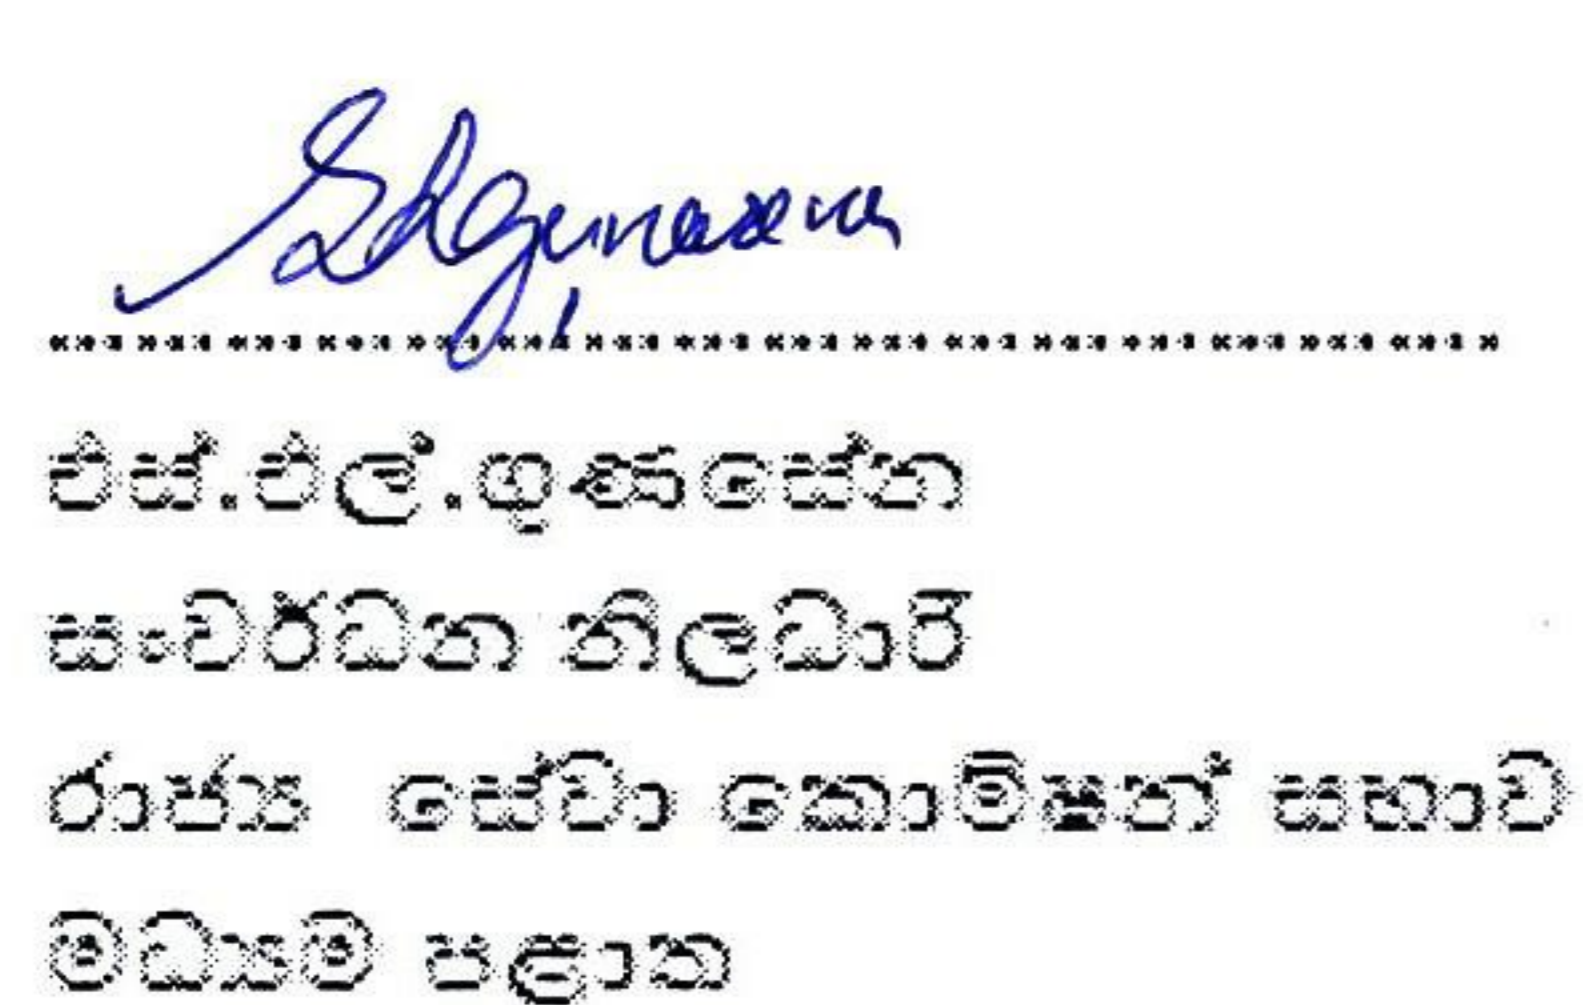 SLGunasena
එස්.එල්.ගුණසේන
සංවර්ධන නිලධාරී
රාජ්‍ය සේවා කොමිෂන් සභාව
මධ්‍යම පළාත